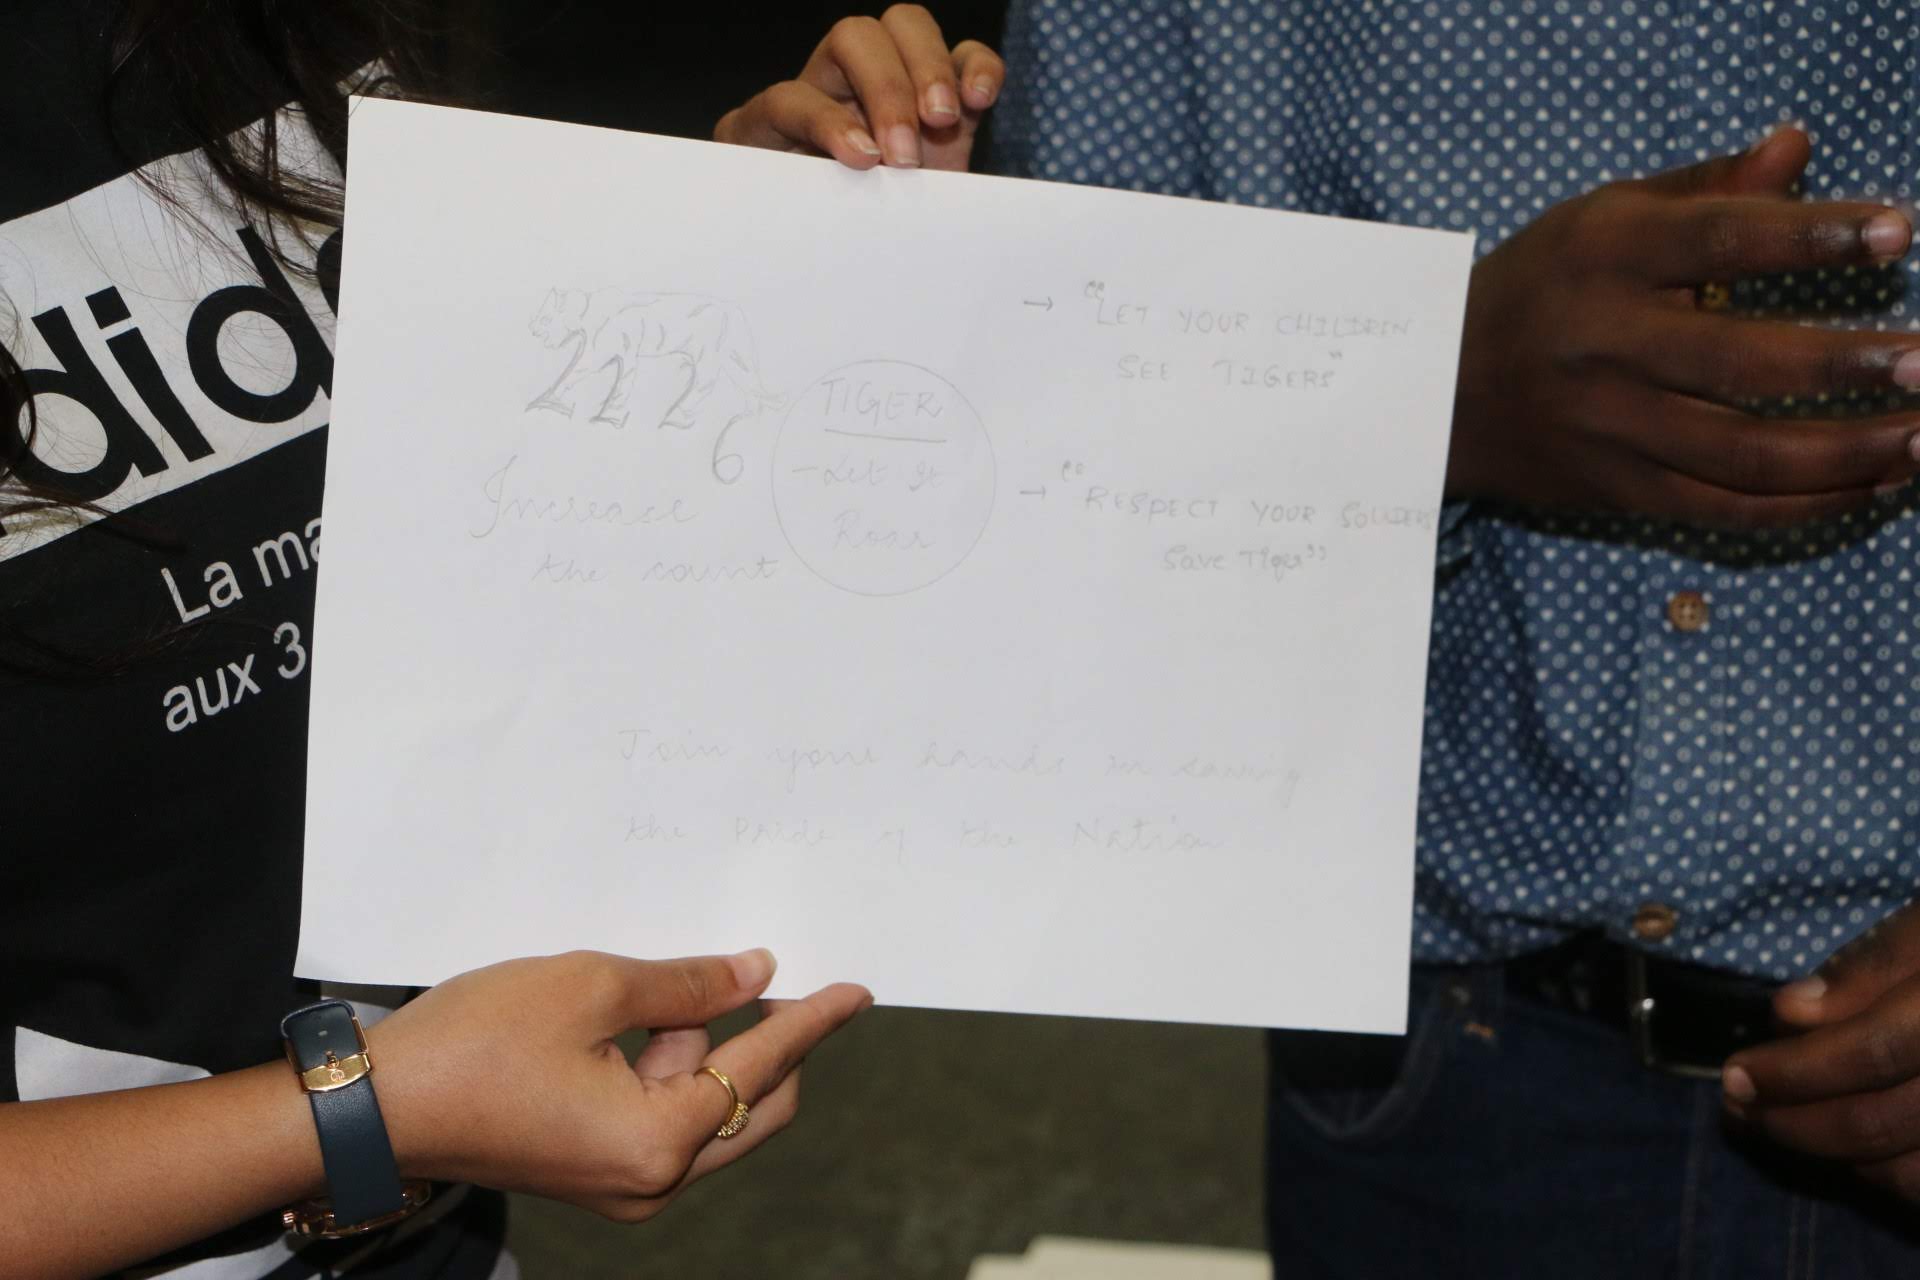 dida
La ma
aux 3
2226
Increase
the count
TIGER
- Let It
Roar
→ "LET YOUR CHILDREN
SEE TIGERS"
→ "RESPECT YOUR
Save Tiger"
Join your hands in saving
the Pride of the Nation